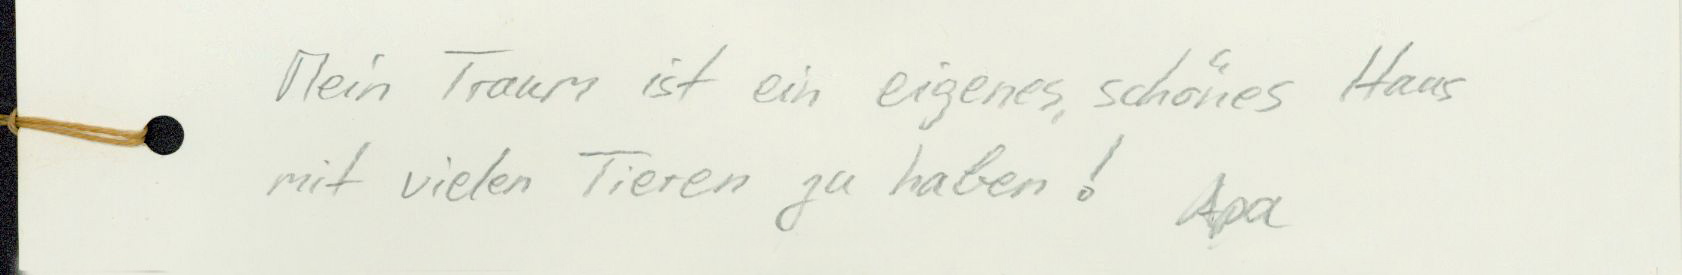 Mein Traum ist ein eigenes, schönes Haus
mit vielen Tieren zu haben!